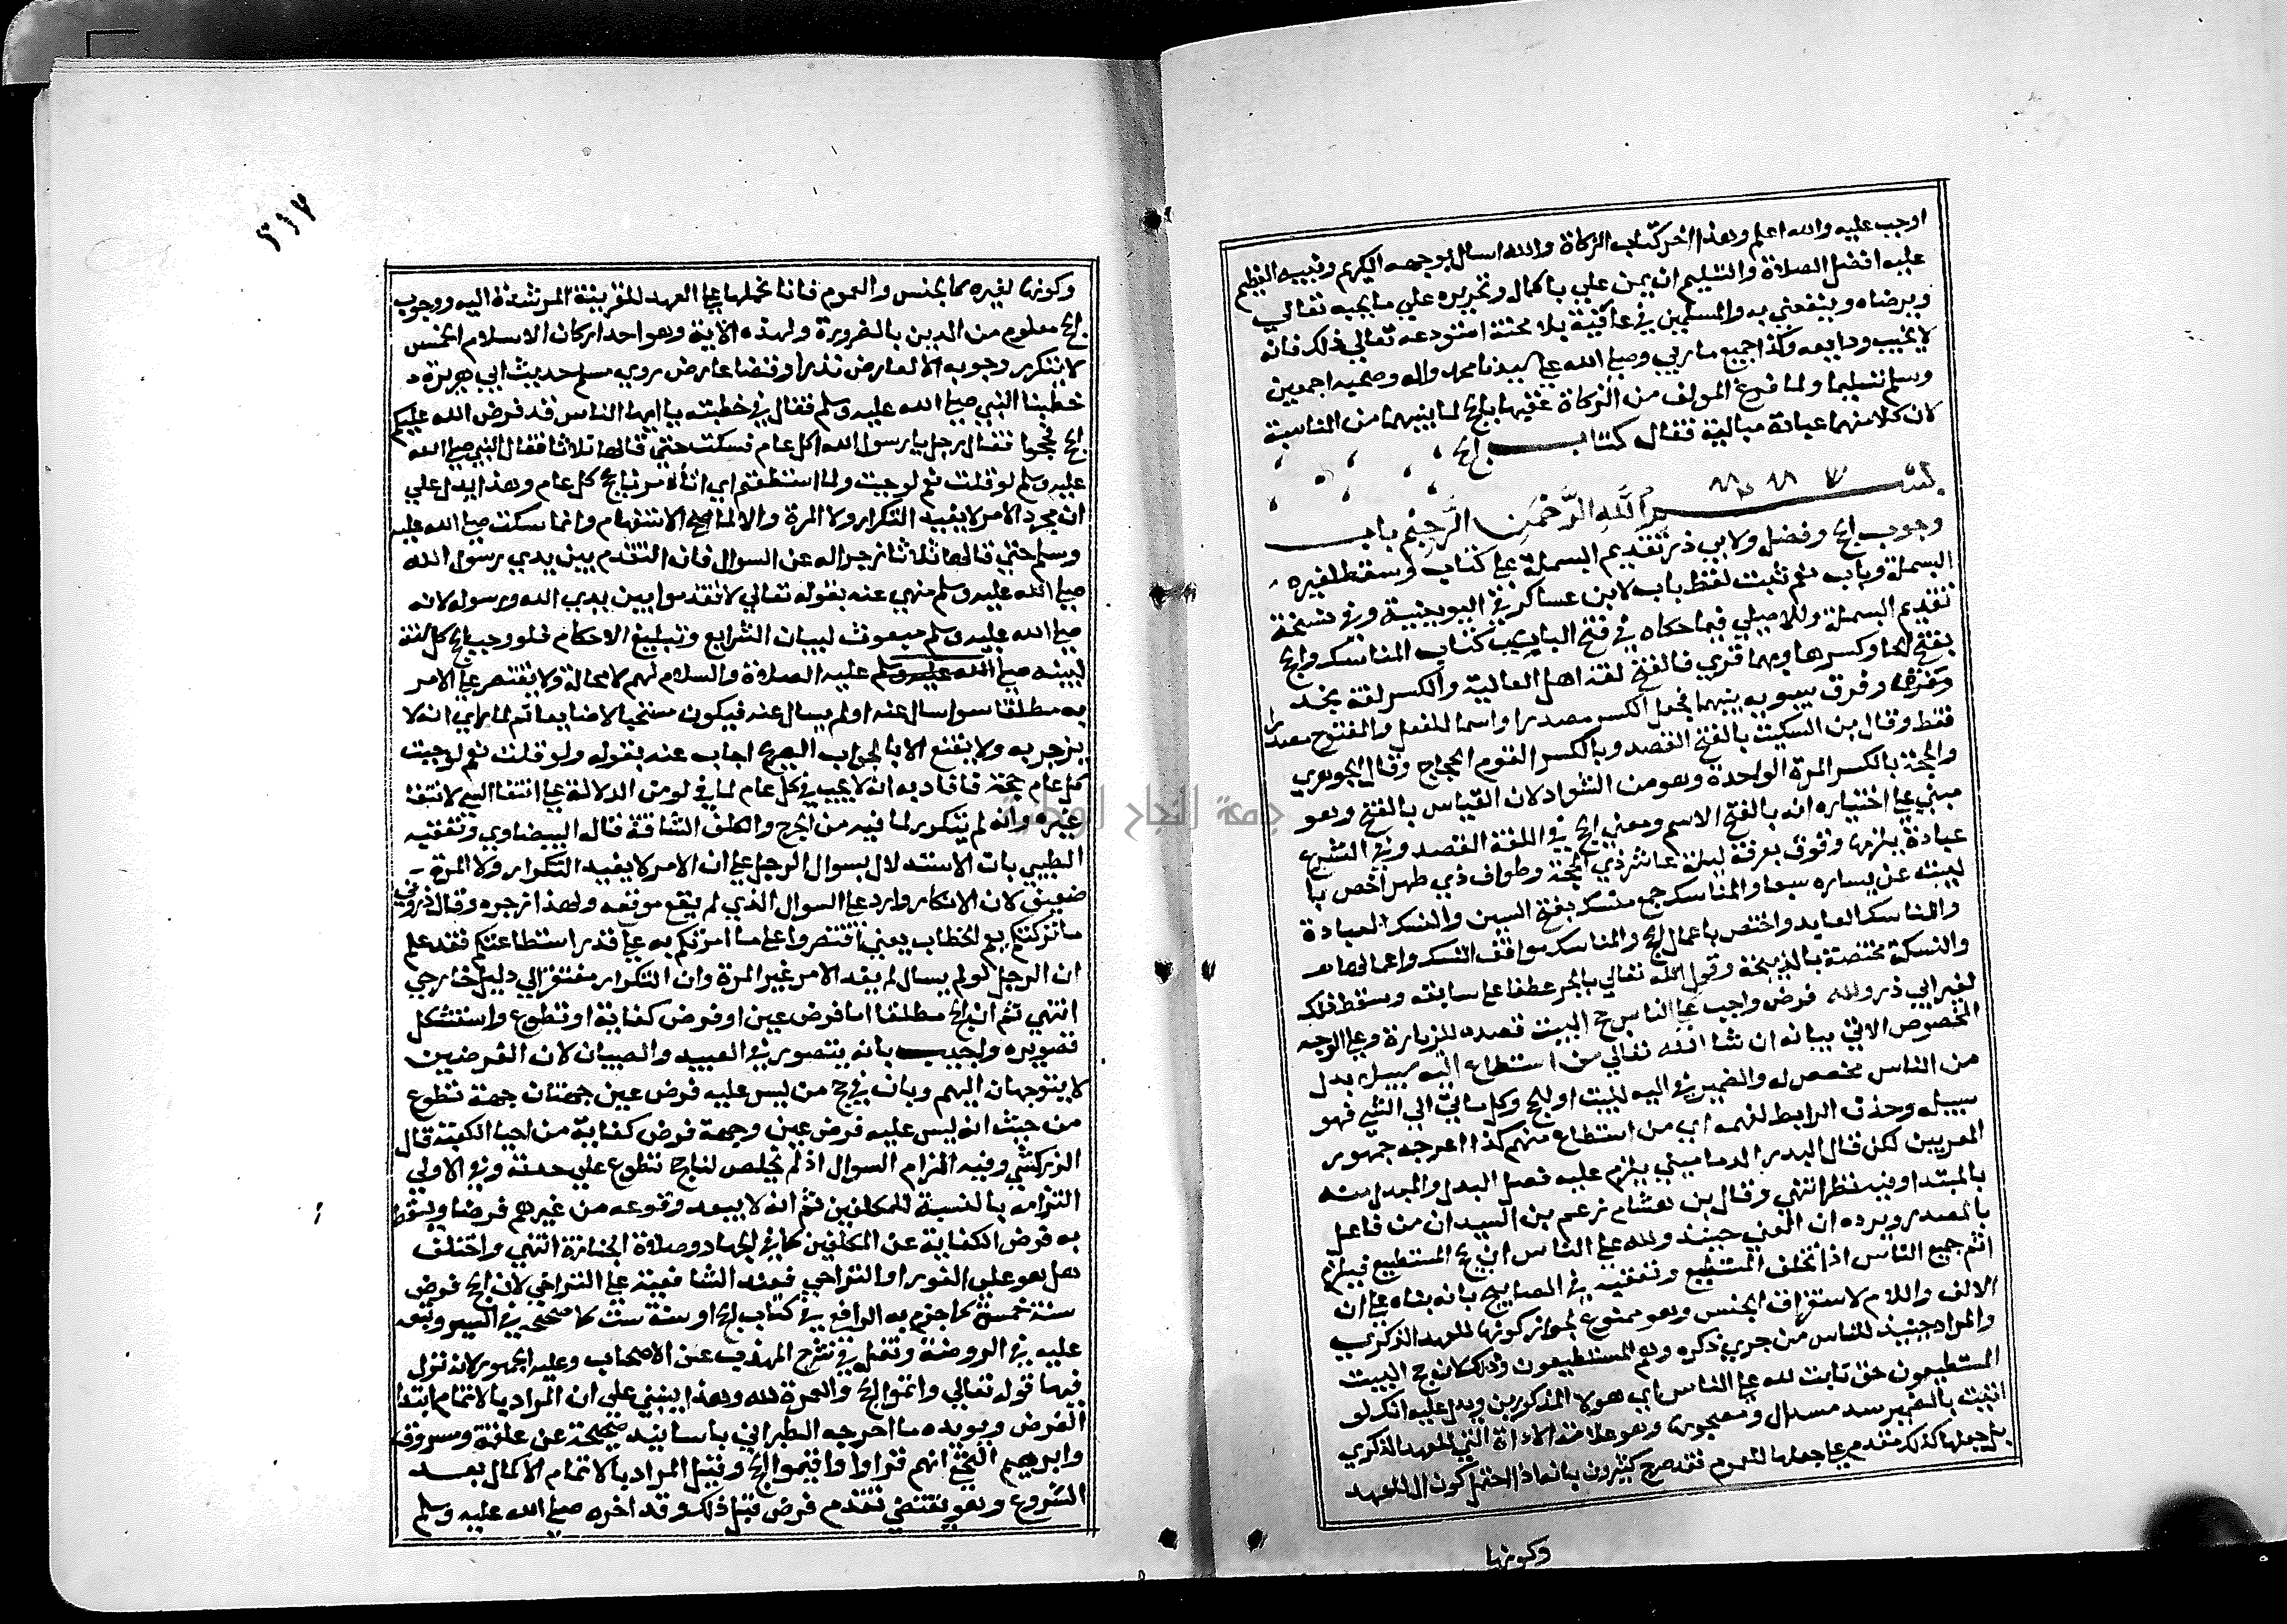 اوجب عليه والله اعلم وهذا اخر كتاب الزكاة والله اسال بوجهه الكريم ونبيه العظيم
عليه افضل الصلاة والتسليم ان يمن علي باكماله وتحريره علي ما يحبه تعالي
ويرضاه وينفعني به والمسلمين في عافية بلا محنة استودعه تعالي ذلك فانه
لا يخيب ودايعه وكذا جميع ماربي وصلي الله علي سيدنا محمد واله وصحبه اجمعين
وسلم تسليما ولما فرغ المولف من الزكاة عقبها بالحج لما بينهما من المناسبة
لان كلا منهما عبادة مالية فقال كتاب الحج
بسم الله الرحمن الرحيم باب
وجوب الحج وفضله ولابي ذر تقديم البسملة علي كتاب وسقط لغيره
البسملة وباب نعم ثبت لفظ باب لابن عساكر في اليونينية وفي نسخة
تقديم البسملة وللاصيلي فيما حكاه في فتح الباري كتاب المناسك والحج
بفتح الحا وكسرها وبهما قري فالفتح لغة اهل العالية والكسر لغة نجد
وفرق سيبويه بينهما فجعل الكسر مصدرا واسما للفعل والمفتوح مصدرا
فقط وقال بن السكيت بالفتح القصد وبالكسر القوم الحجاج وقال الجوهري
والحجة بالكسر المرة الواحدة وهو من الشواذ لان القياس بالفتح وهو
مبني علي اختياره انه بالفتح الاسم ومعني الحج في اللغة القصد وفي الشرع
عبادة يلزمها وقوف بعرفة ليلة عاشر ذي الحجة وطواف ذي طهر اختص با
لبيت عن يساره سبعا والمناسك جمع منسك بفتح السين والنسك العبادة
والناسك العابد واختص باعمال الحج والمناسك مواقف النسك واعمالها
والنسيكة مختصة بالذبيحة وقول الله تعالي بالجر عطفا علي سابقه وسقط ذلك
لغير ابي ذر ولله فرض واجب علي الناس حج البيت قصده للزيارة وعلي الوجه
المخصوص الاتي بيانه ان شا الله تعالي من استطاع اليه سبيلا بدل
من الناس مخصص له والضمير في اليه للبيت او للحج وكل ماتي الي الشي فهو
سبيله وحذف الرابط لفهمه اي من استطاع منهم كذا اعربه جمهور
المعربين لكن قال البدر الدماميني يلزم عليه فصل البدل والمبدل منه
بالمبتدا وفيه نظر انتهي وقال بن هشام زعم بن السيد ان من فاعل
بالمصدر ويرده ان المعني حينئذ ولله علي الناس ان يحج المستطيع فيلزم
اثم جميع الناس اذا تخلف المستطيع وتعقبه في المصابيح بانه بناه علي ان
الالف واللام لاستغراق الجنس وهو ممنوع لجواز كونها للعهد الذكري
والمراد حينئذ للناس من جري ذكره وهم المستطيعون وذلك لان حج البيت
المستطيعون حق ثابت لله علي الناس اي هولا المذكورين ويدل عليه انك لو
اتيت بالضمير سد مسد ال ومصحوبها وهو علامة الاداة التي للعهد الذكري
بل جعلها كذلك مقدم علي جعلها للعموم فقد صرح كثيرون بانه اذا احتمل كون ال للعهد
وكونها
٣١٧
وكونها لغيره كالجنس والعموم فانا نحملها علي العهد للقرينة المرشدة اليه ووجوب
الحج معلوم من الدين بالضرورة ولهذه الاية وهو احد اركان الاسلام الخمس
لا يتكرر وجوبه الا لعارض نذر او قضا عارض روي مسلم حديث ابي هريرة
خطبنا النبي صلي الله عليه وسلم فقال في خطبته يا ايها الناس قد فرض الله عليكم
الحج فحجوا فقال رجل يا رسول الله اكل عام فسكت حتي قالها ثلاثا فقال النبي صلي الله
عليه وسلم لو قلت نعم لوجبت ولما استطعتم اي اتامرنا بالحج كل عام وهذا يدل علي
ان مجرد الامر لا يفيد التكرار ولا المرة والا لما صح الاستفهام وانما سكت صلي الله عليه
وسلم حتي قالها ثلاثا زجرا له عن السوال فان التقدم بين يدي رسول الله
صلي الله عليه وسلم منهي عنه بقوله تعالي لا تقدموا بين يدي الله ورسوله لانه
صلي الله عليه وسلم مبعوث لبيان الشرايع وتبليغ الاحكام فلو وجب الحج كل سنة
لبينه صلي الله عليه وسلم عليه الصلاة والسلام لهم لا محالة ولا يقتصر علي الامر
به مطلقا سوا سال عنه او لم يسال عنه فيكون مستحيلا ضايعا ثم لما راي انه لا
ينزجر به ولا يقنع الا بالجواب الصريح اجاب عنه بقوله ولو قلت نعم لوجبت
كل عام حجة فافاد به انه لا يجب في كل عام لما في لو من الدلالة علي انتفا الشي لانتفا
غيره وانه لم يتكرر لما فيه من الحرج والكلف الشاقة قاله البيضاوي وتعقبه
الطيبي بان الاستدلال بسوال الرجل علي ان الامر لا يفيد التكرار ولا المرة
ضعيف لان الانكار وارد علي السوال الذي لم يقع موقعه ولهذا زجره وقال ذروني
ما تركتكم يعم الخطاب يعني اقتصروا علي ما امرتكم به علي قدر استطاعتكم فقد علم
ان الرجل لو لم يسال لم يفد الامر غير المرة وان التكرار مفتقر الي دليل خارجي
انتهي ثم ان الحج مطلقا اما فرض عين او فرض كفاية او تطوع واستشكل
تصويره واجيب بانه يتصور في العبيد والصبيان لان الفرضين
لا يتوجهان اليهم وبان في حج من ليس عليه فرض عين جهتان جهة تطوع
من حيث انه ليس عليه فرض عين وجهة فرض كفاية من احيا الكعبة قال
الزركشي وفيه التزام السوال اذ لم يخلص لنا حج تطوع علي حدته وفي الاولي
التزامه بالنسبة للمكلفين ثم انه لا يبعد وقوعه من غيرهم فرضا ويسقط
به فرض الكفاية عن المكلفين كما في الجهاد وصلاة الجنازة انتهي واختلف
هل هو علي الفور او التراخي فعند الشافعية علي التراخي لان الحج فرض
سنة خمس كما جزم به الرافعي في كتاب الحج او سنة ست كما صححه في السير وتبعه
عليه في الروضة ونقله في شرح المهذب عن الاصحاب وعليه الجمهور لانه نزل
فيها قوله تعالي واتموا الحج والعمرة لله وهذا ينبني علي ان المراد بالاتمام ابتدا
الفرض ويويده ما اخرجه الطبراني باسانيد صحيحة عن علقمة ومسروق
وابرهيم النخعي انهم قراوا واقيموا الحج وقيل المراد بالاتمام الاكمال بعد
الشروع وهو يقتضي تقدم فرض قبل ذلك وقد اخره صلي الله عليه وسلم
جامعة النجاح الوطنية